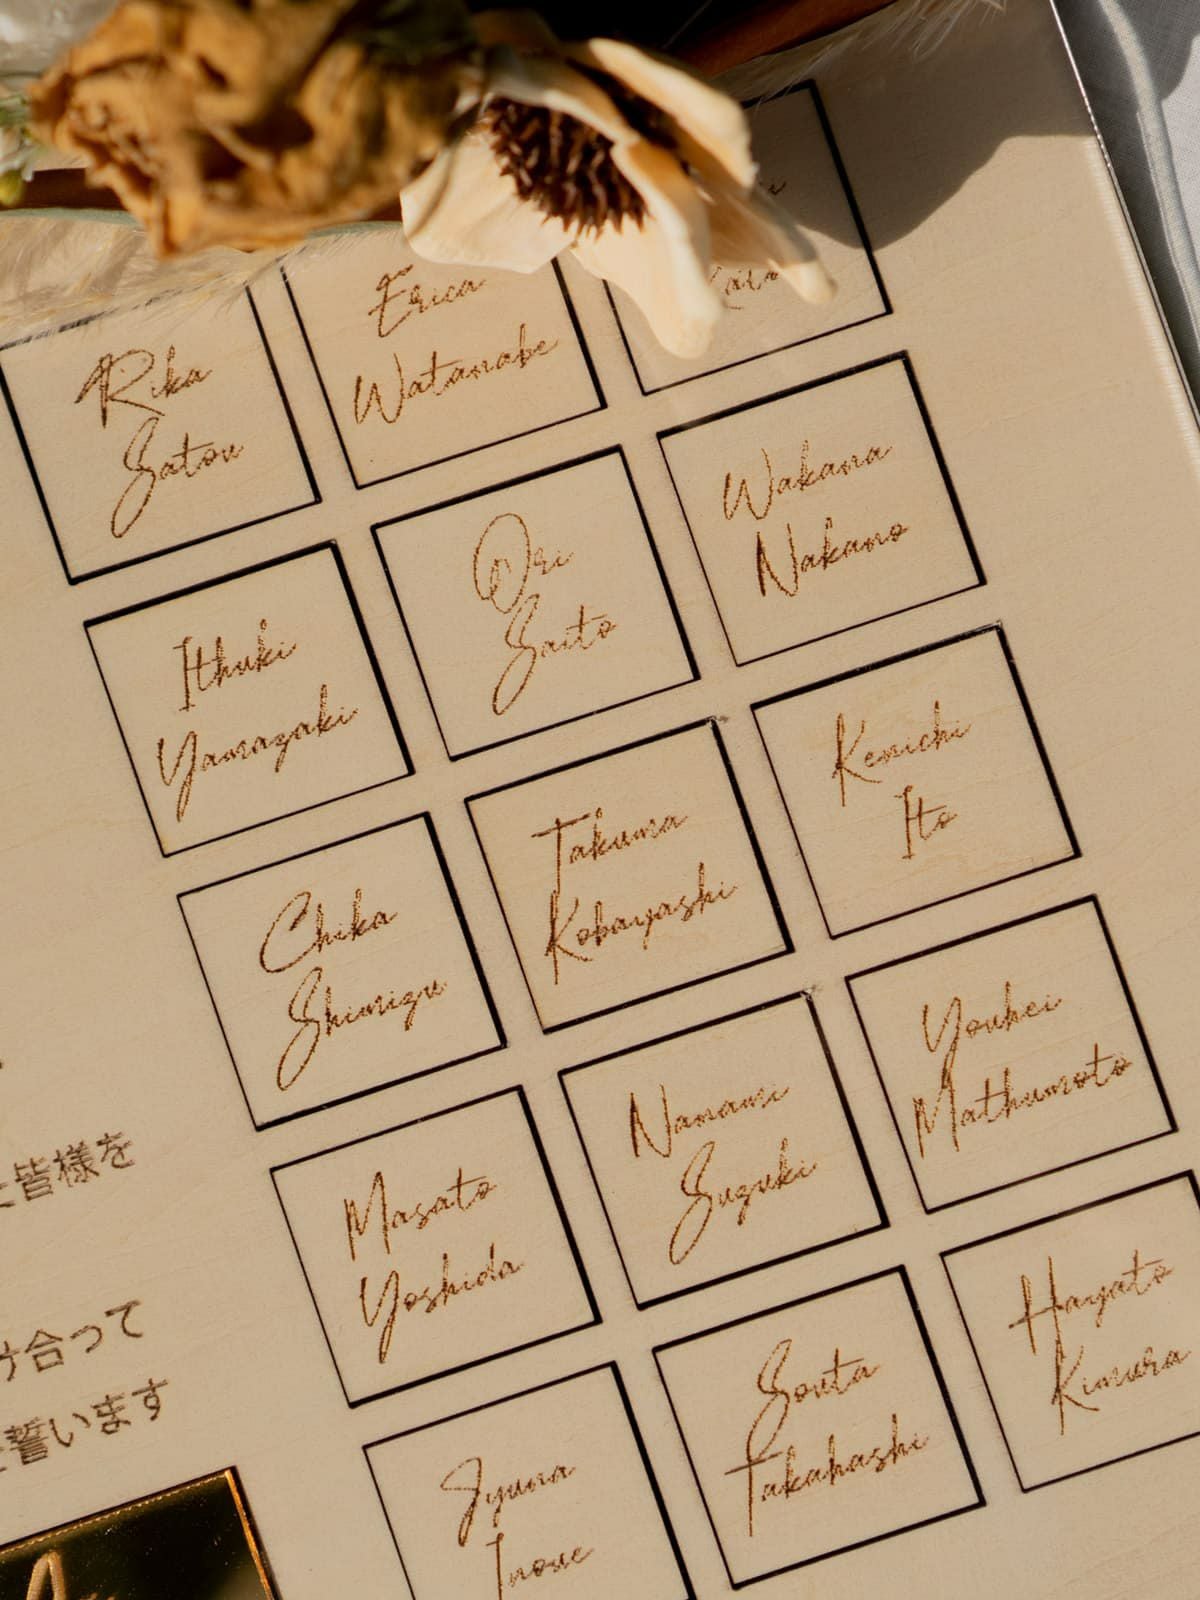 Rika
Satou
Erica
Watanabe
Ithuki
Yamazaki
Ori
Saito
Wakana
Nakano
Chika
Shimizu
Takuma
Kobayashi
Kenichi
Ito
Masato
Yoshida
Nanami
Suzuki
Youhei
Mathumoto
Jyuna
Inoue
Souta
Takahashi
Hayato
Kimura
皆様を
合って
誓います